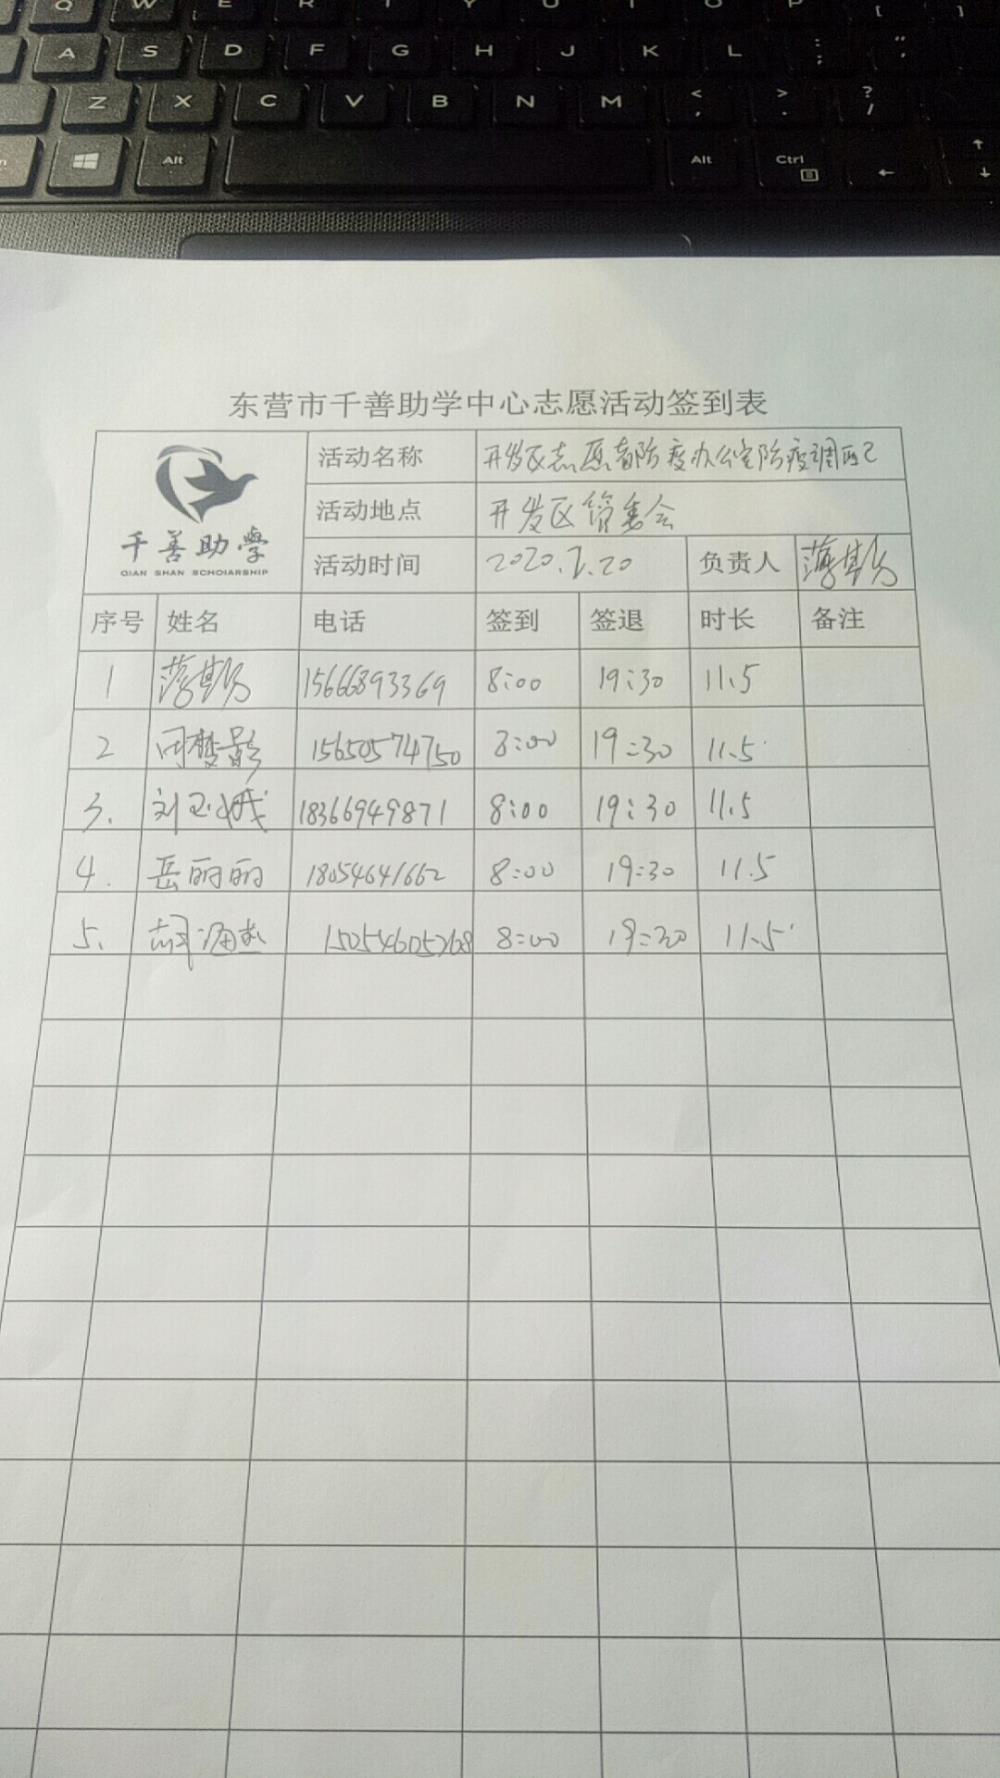 Q W E R T Y U I O P [ ]
A S D F G H J K L : ; " '
Z X C V B N M < , > . ? /
Alt Alt Ctrl
东营市千善助学中心志愿活动签到表
千善助學
QIAN SHAN SCHOIARSHIP
活动名称 开发区志愿者防疫办公室防疫调配
活动地点 开发区管委会
活动时间 2020.2.20 负责人
序号 姓名 电话 签到 签退 时长 备注
1 15666893369 8:00 19:30 11.5
2 15650574750 8:00 19:30 11.5
3. 刘玉娥 18366949871 8:00 19:30 11.5
4. 岳丽丽 18054641662 8:00 19:30 11.5
5. 15054605268 8:00 19:30 11.5